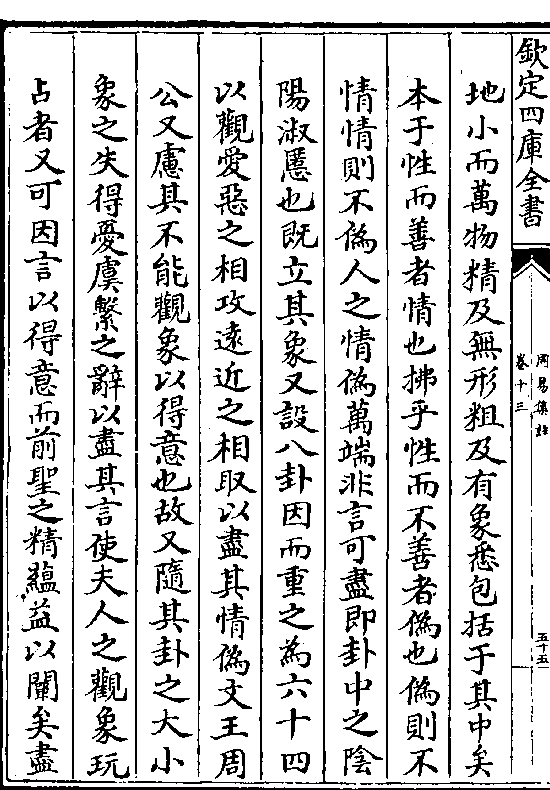 欽定四庫全書
周易集註
卷十三
五十五
地小而萬物精及無形粗及有象悉包括于其中矣
本于性而善者情也拂乎性而不善者偽也偽則不
情情則不偽人之情偽萬端非言可盡即卦中之陰
陽淑慝也既立其象又設八卦因而重之為六十四
以觀愛惡之相攻遠近之相取以盡其情偽文王周
公又慮其不能觀象以得意也故又隨其卦之大小
象之失得憂虞繫之辭以盡其言使夫人之觀象玩
占者又可因言以得意而前聖之精蘊益以闡矣盡